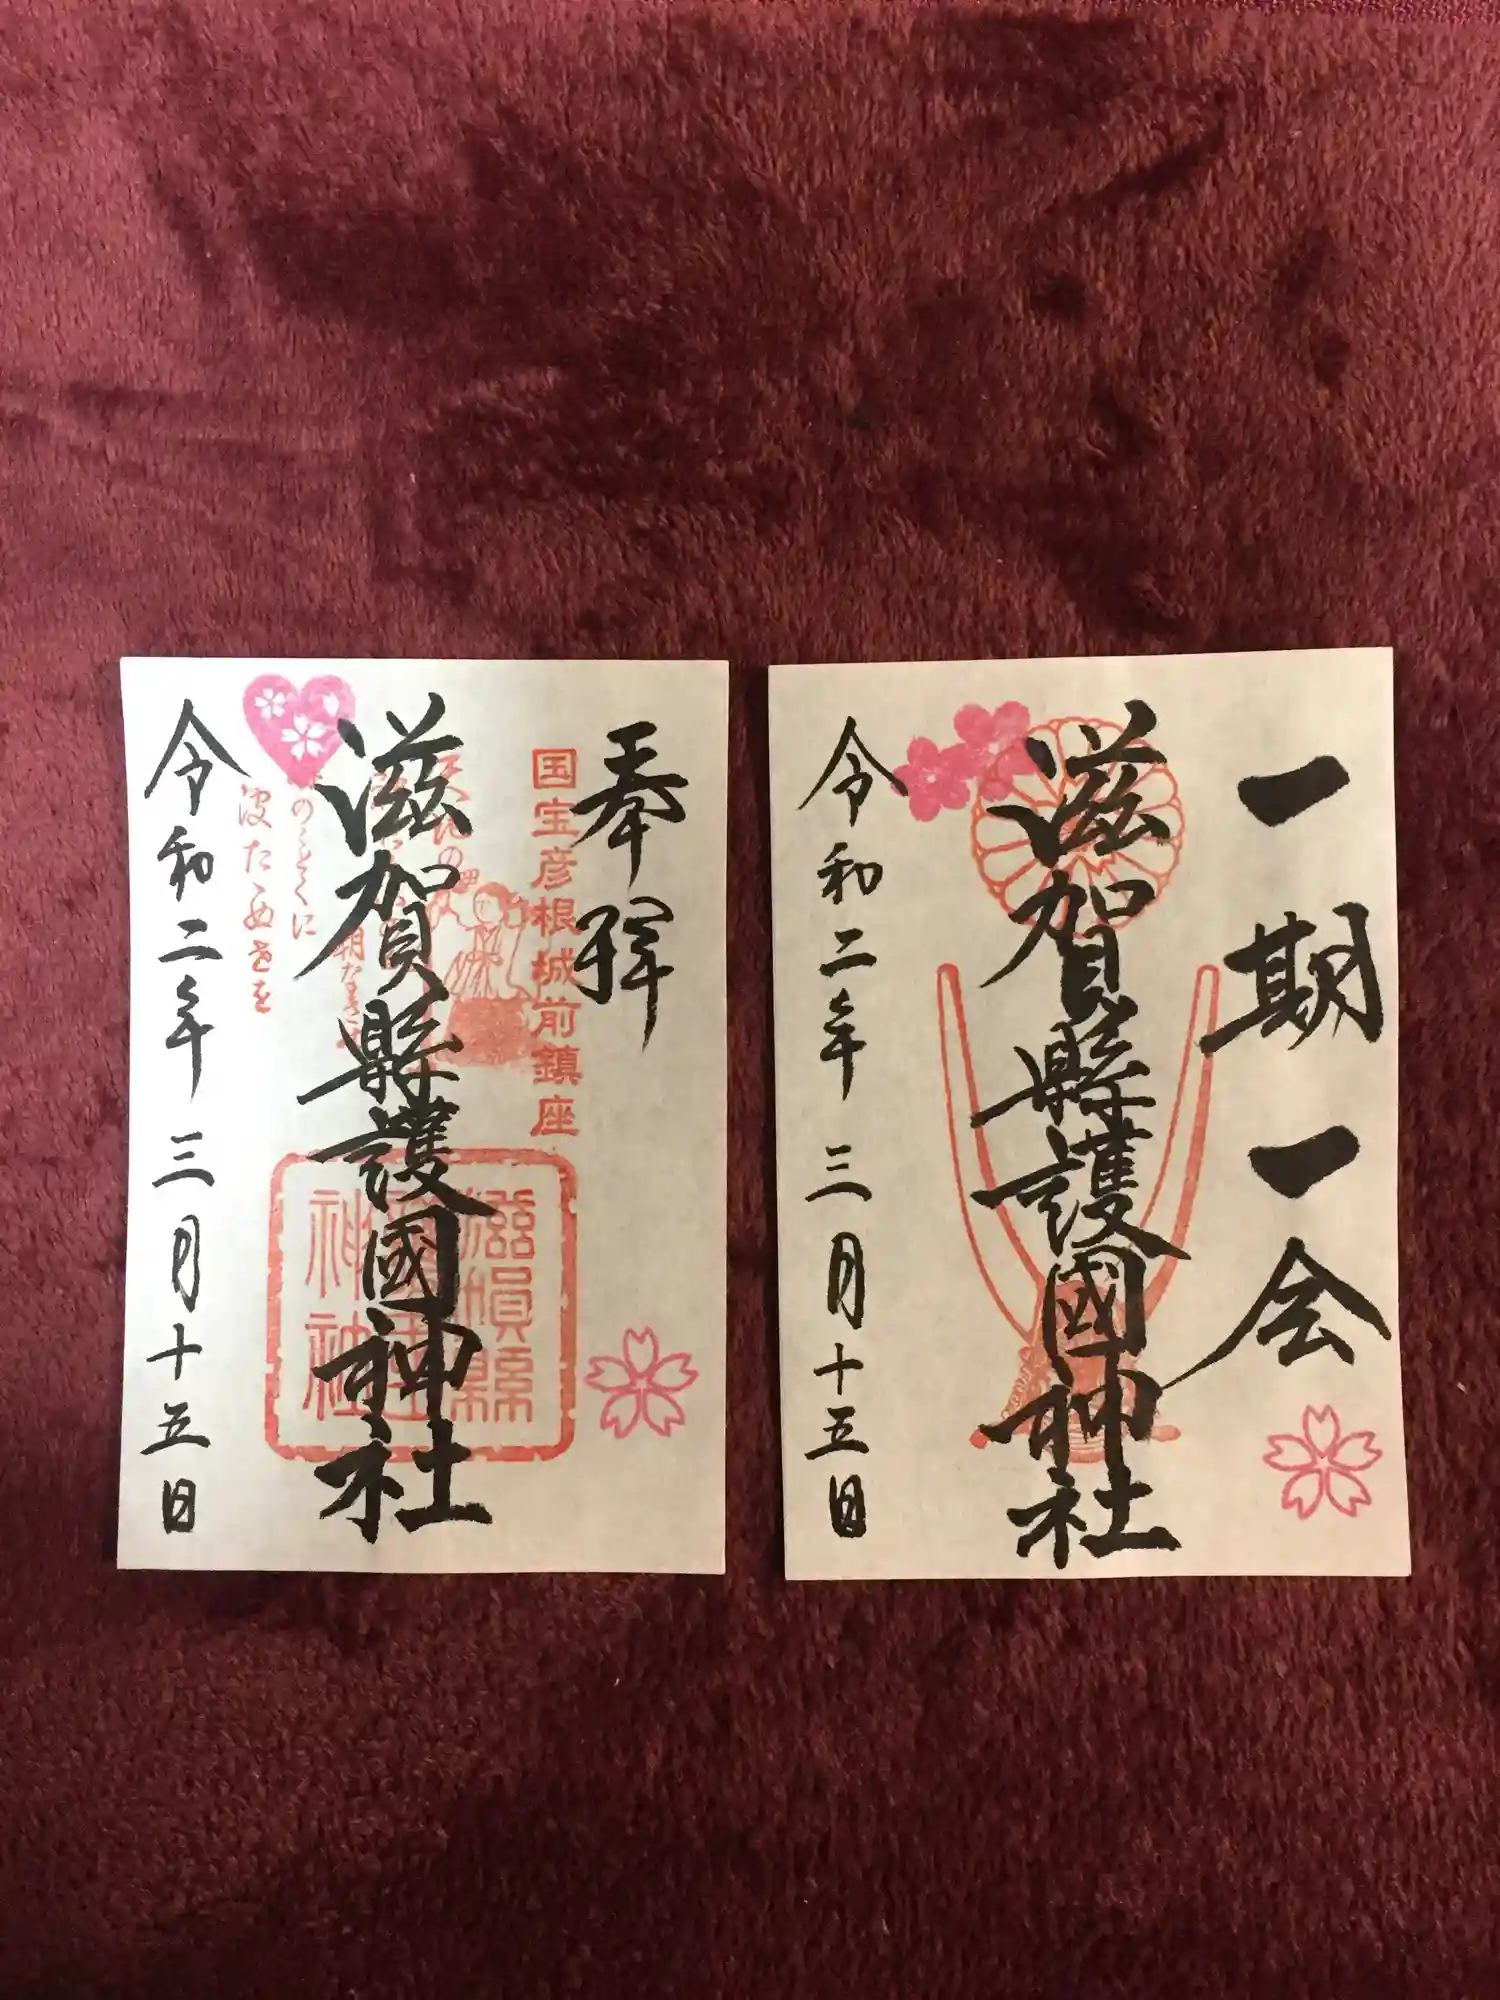 奉拝
国宝彦根城前鎮座
滋賀縣護國神社
滋賀縣
神社
のことくに
波たゝぬ世を
令和二年三月十五日
一期一会
滋賀縣護國神社
令和二年三月十五日